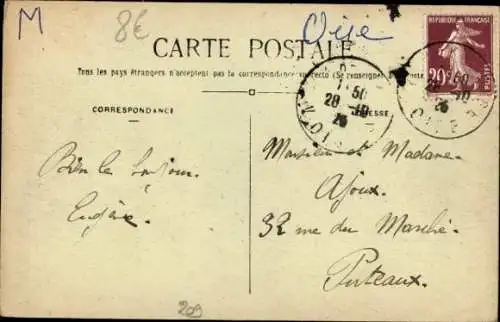 M
8€
Oise
CARTE POSTALE
Tous les pays étrangers n'acceptent pas la correspondance au recto (Se renseigner à la Poste
CORRESPONDANCE
ADRESSE
RÉPUBLIQUE FRANÇAISE
20c
POSTES
1*50
28-10
26
OISE
Bien le bonjour.
Eugène.
Monsieur et Madame
Ajoux.
32 rue du Marché.
Puteaux.
209